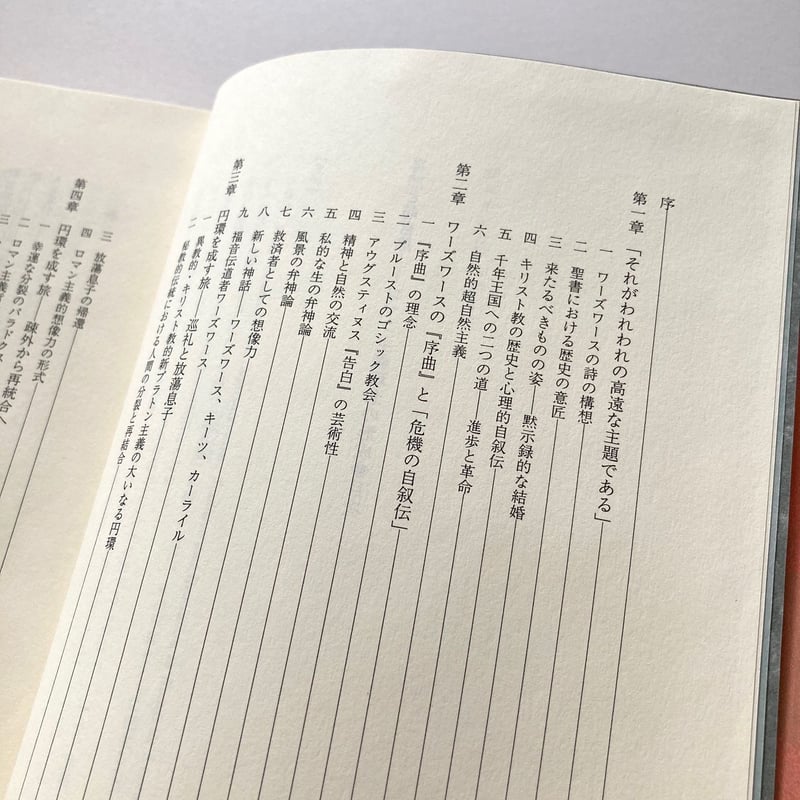 序
第一章 「それがわれわれの高遠な主題である」
一 ワーズワースの詩の構想
二 聖書における歴史の意匠
三 来たるべきものの姿——黙示録的な結婚
四 キリスト教の歴史と心理的自叙伝
五 千年王国への二つの道——進歩と革命
六 自然的超自然主義
第二章 ワーズワースの『序曲』と「危機の自叙伝」
一 『序曲』の理念
二 プルーストのゴシック教会
三 アウグスティヌス『告白』の芸術性
四 精神と自然の交流
五 私的な生の弁神論
六 風景の弁神論
七 救済者としての想像力
八 新しい神話——ワーズワース、キーツ、カーライル
九 福音伝道者ワーズワース
第三章 円環を成す旅——巡礼と放蕩息子
一 異教的・キリスト教的新プラトン主義の大いなる円環
二 秘教的伝統における人間の分裂と再結合
三 放蕩息子の帰還
四 ロマン主義的想像力の形式
第四章 円環を成す旅——疎外から再統合へ
一 幸運な分裂のパラドクス
二 ロマン主義